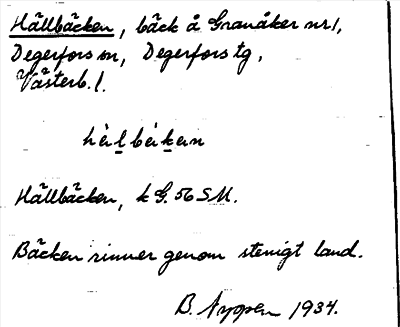 Hällbäcken, bäck å Granåker nr 1,
Degerfors sn, Degerfors tg,
Västerb. l.
Hällbäcken, k G. 56 SM.
Bäcken rinner genom stenigt land.
B. Nyppen 1934.